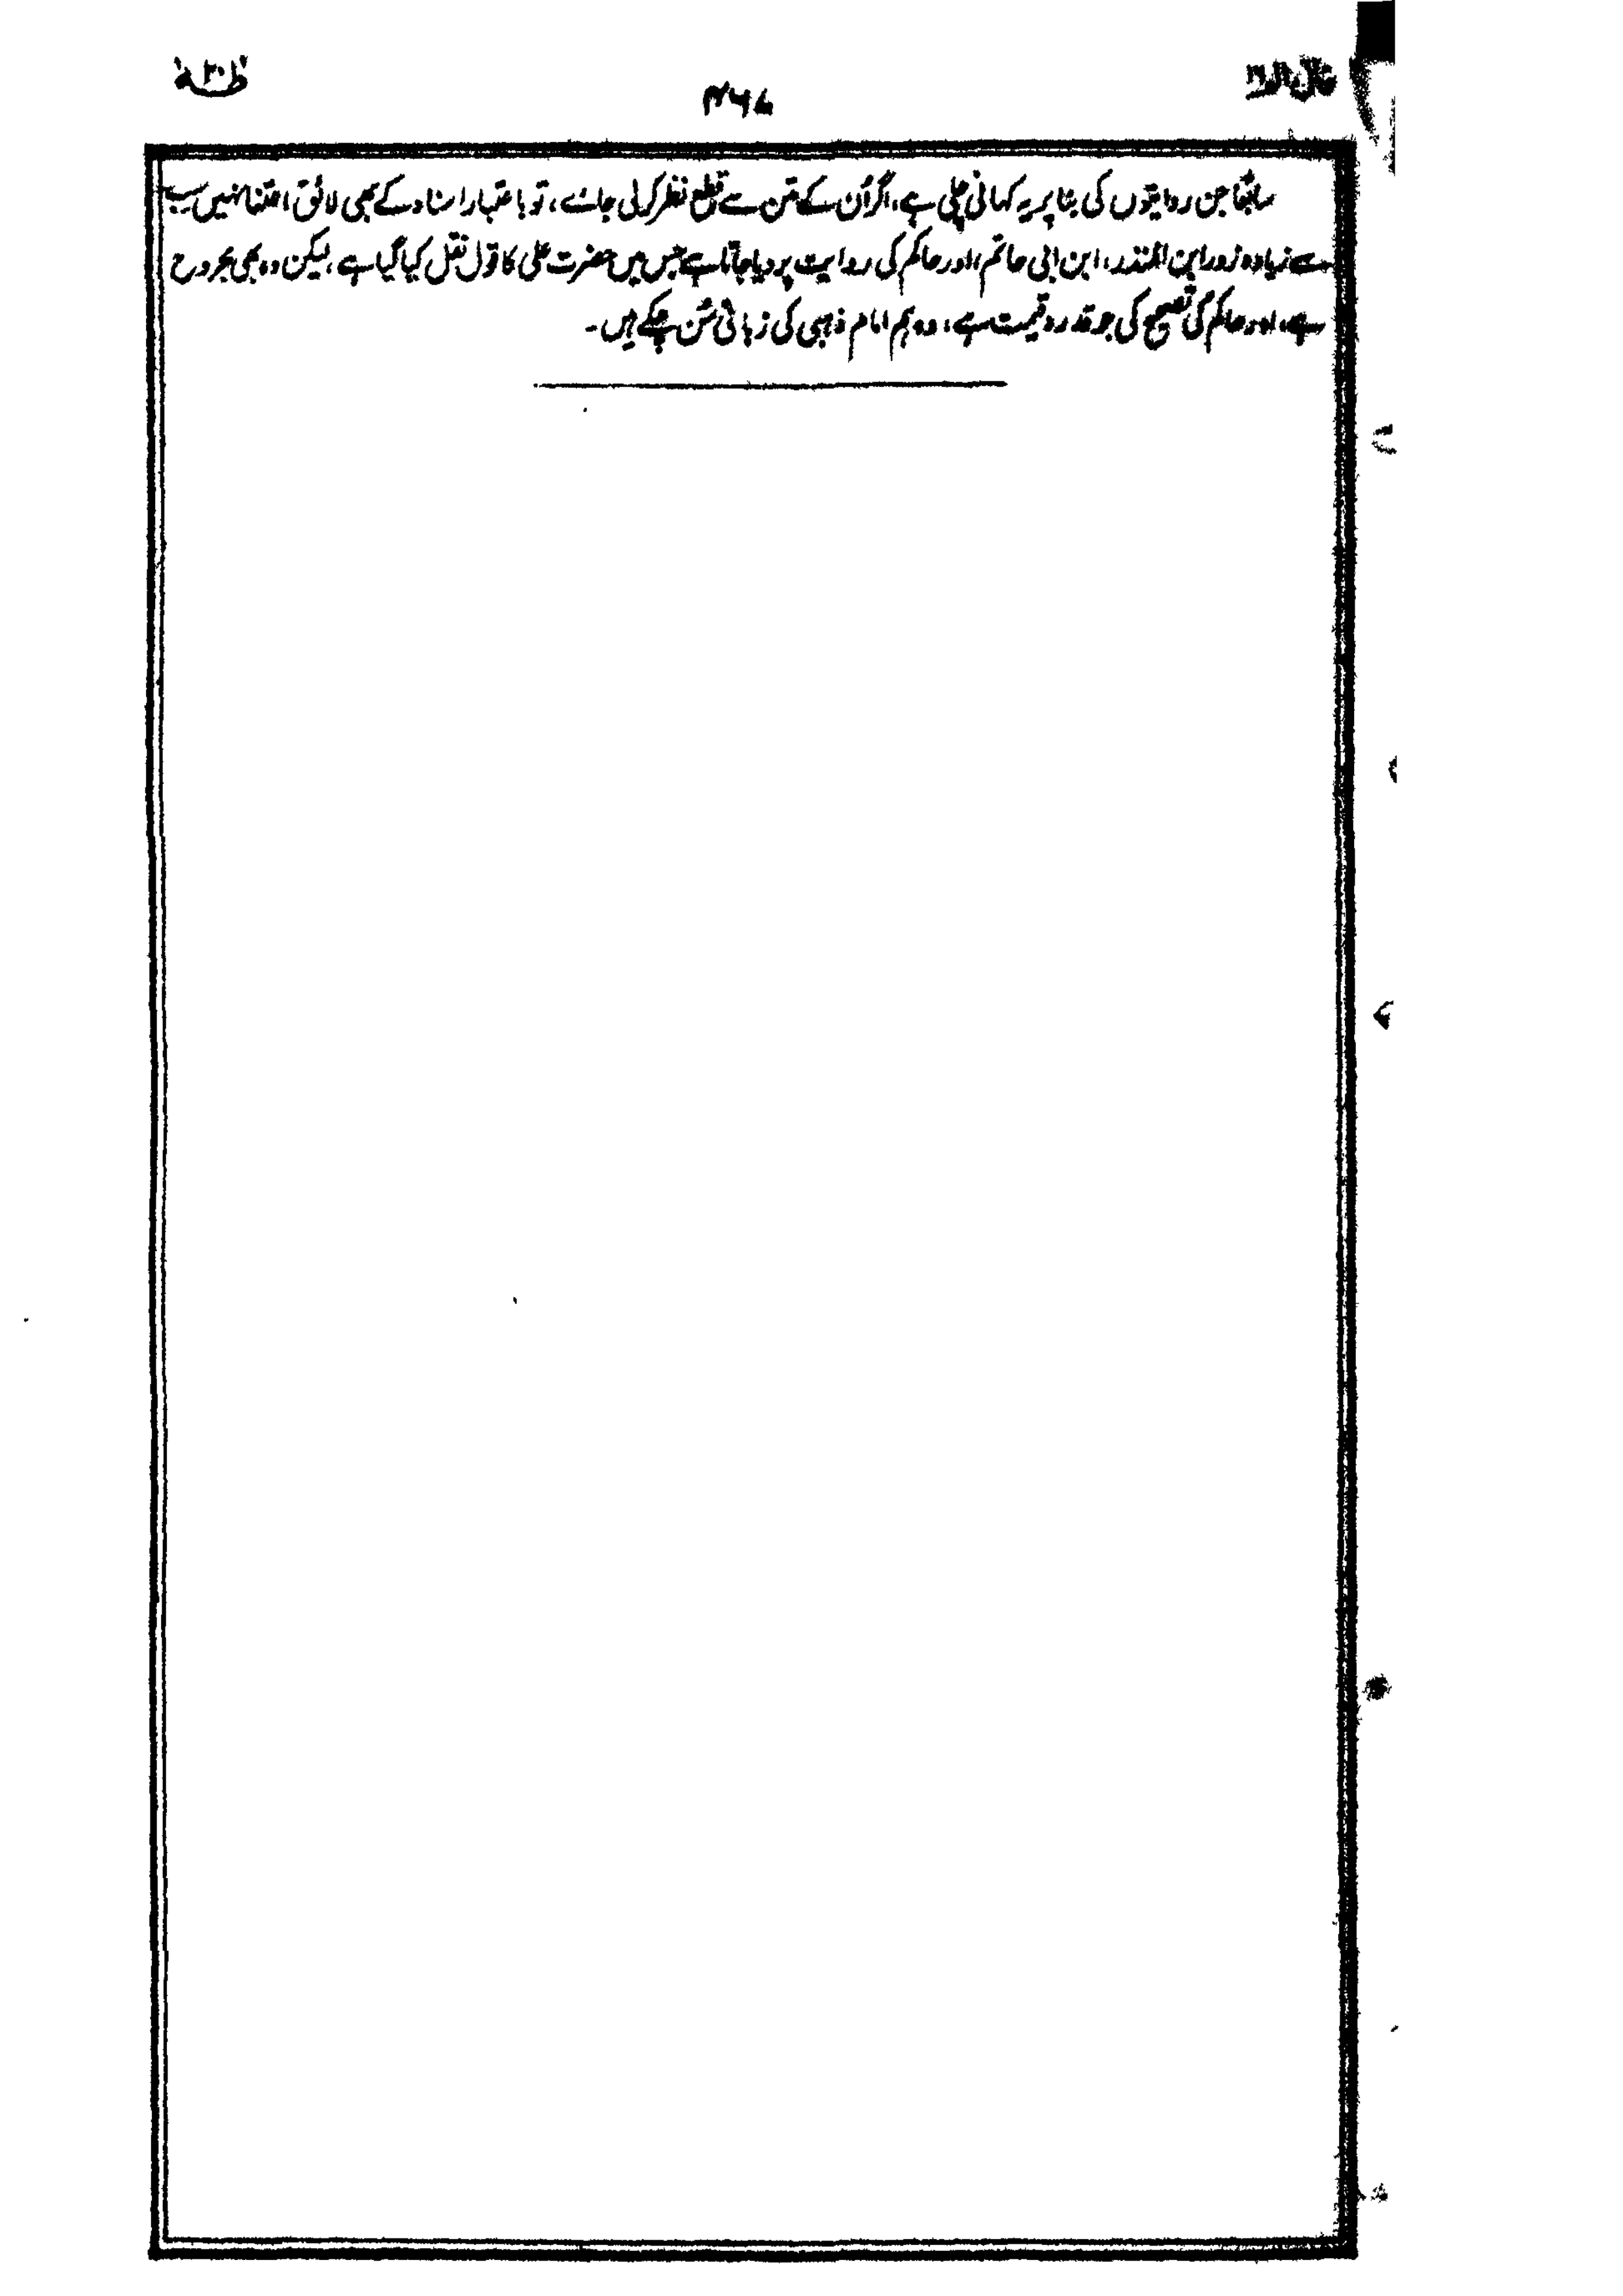 قال الم ۱۶
۴۶۷
طٰہٰ ۲۰
سابقا جن روایتوں کی بنا پر یہ کہانی چلی ہے، اگر اُن کے متن سے قطع نظر کر لی جائے، تو باعتبار اسناد کے بھی لائق اعتنا نہیں سب
سے زیادہ زور ابن المنذر، ابن ابی حاتم، اور حاکم کی روایت پر دیا جاتا ہے جس میں حضرت علی کا قول نقل کیا گیا ہے، لیکن وہ بھی مجروح
ہے، اور حاکم کی تصحیح کی جو قدر و قیمت ہے، وہ ہم امام ذہبی کی زبانی سُن چکے ہیں۔